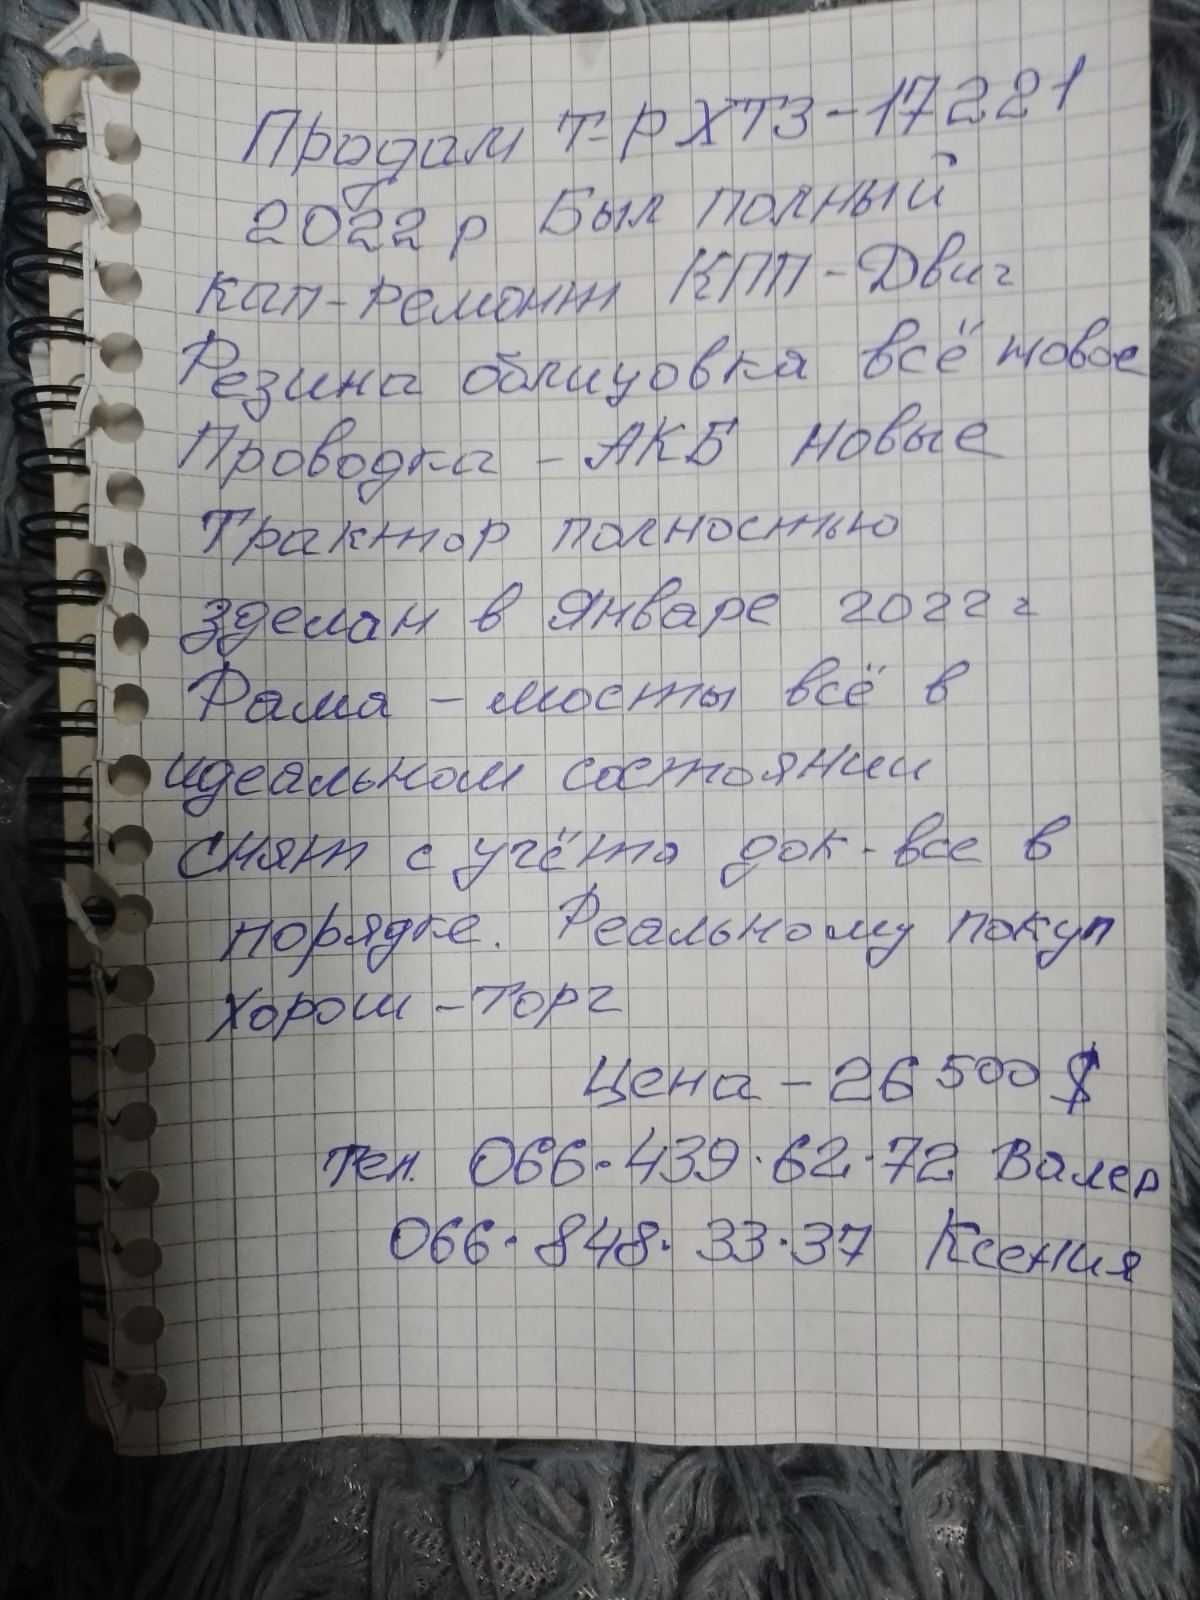 Продам т-р ХТЗ-17221
2022 р Был полный
кап-ремонт КПП-Двиг
Резина облицовка всё новое
Проводка - АКБ новые
Трактор полностью
зделан в Январе 2022 г
Рама - мосты всё в
идеальном состоянии
снят с учёта док-все в
порядке. Реальному покуп
хорош - торг
Цена - 26 500 $
тел. 066.439.62.72 Валер
066.848.33.37 Ксения